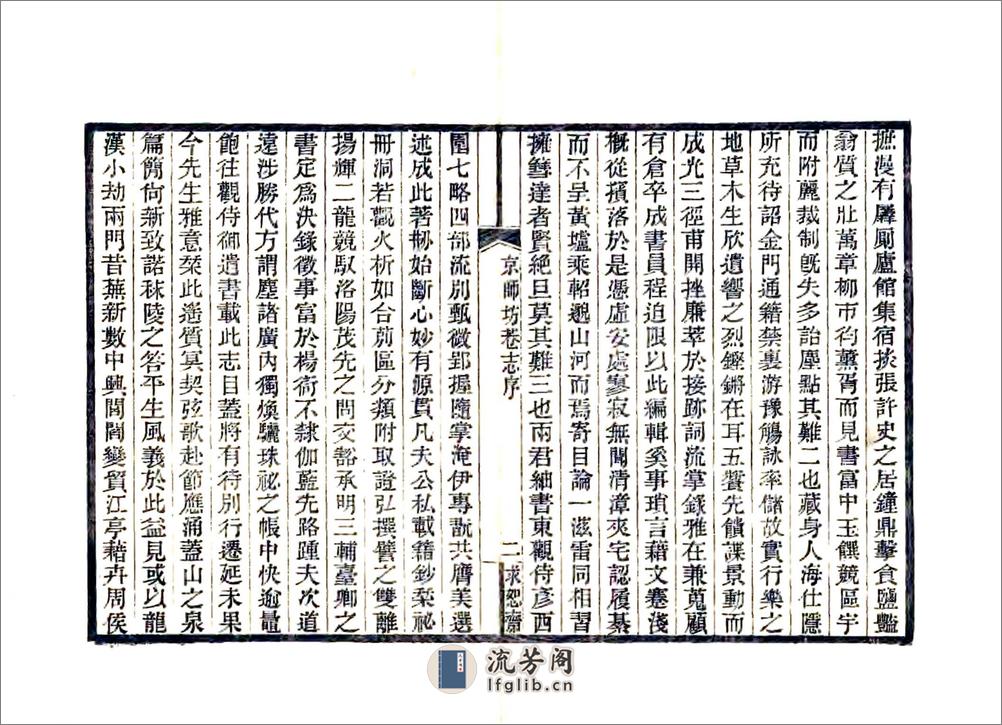 摭漫有屬廁廬館集宿掞張許史之居鐘鼎擊食鹽豔
翁質之壯萬章柳市箹薰胥而見書富中玉饌競區宇
而附麗裁制旣失多詒塵點其難二也藏身人海仕隱
所充待詔金門通籍禁裏游豫觴詠率儲故實行樂之
地草木生欣遺響之烈鏗鏘在耳五饗先饋諜景動而
成光三徑甫開挫廉萃於接跡詞流掌錄雅在兼蒐顧
有倉卒成書員程迫限以此編輯奚事瑣言藉文蹇淺
概從擯落於是憑虛安處寥寂無聞清漳夾宅認履綦
而不呈黃壚乘軺邈山河而焉寄目論一滋雷同相習
擁彗達者賢絕旦莫其難三也兩君紬書東觀侍彥西
京師坊巷志序
二
求恕齋
園七略四部流別甄微郢握隨掌淹伊專翫共膺美選
述成此著刱始斷心妙有源貫凡夫公私載籍鈔棨祕
冊洞若觀火析如合前區分類附取證弘撰譬之雙離
揚輝二龍競馭洛陽茂先之問交豁承明三輔臺卿之
書定爲決錄徵事富於楊衒不隸伽藍先路踵夫次道
遠涉勝代方謂塵諸廣內獨煥驪珠祕之帳中快逾量
飽往觀侍御遺書載此志目蓋將有待別行遷延未果
今先生雅意棨此遙質冥契弦歌赴節應涌蓋山之泉
篇簡向新致諾秣陵之答平生風義於此益見或以龍
漢小劫兩門昔蕪新數中興閭閻變貿江亭藉卉周侯
流芳阁
lfglib.cn